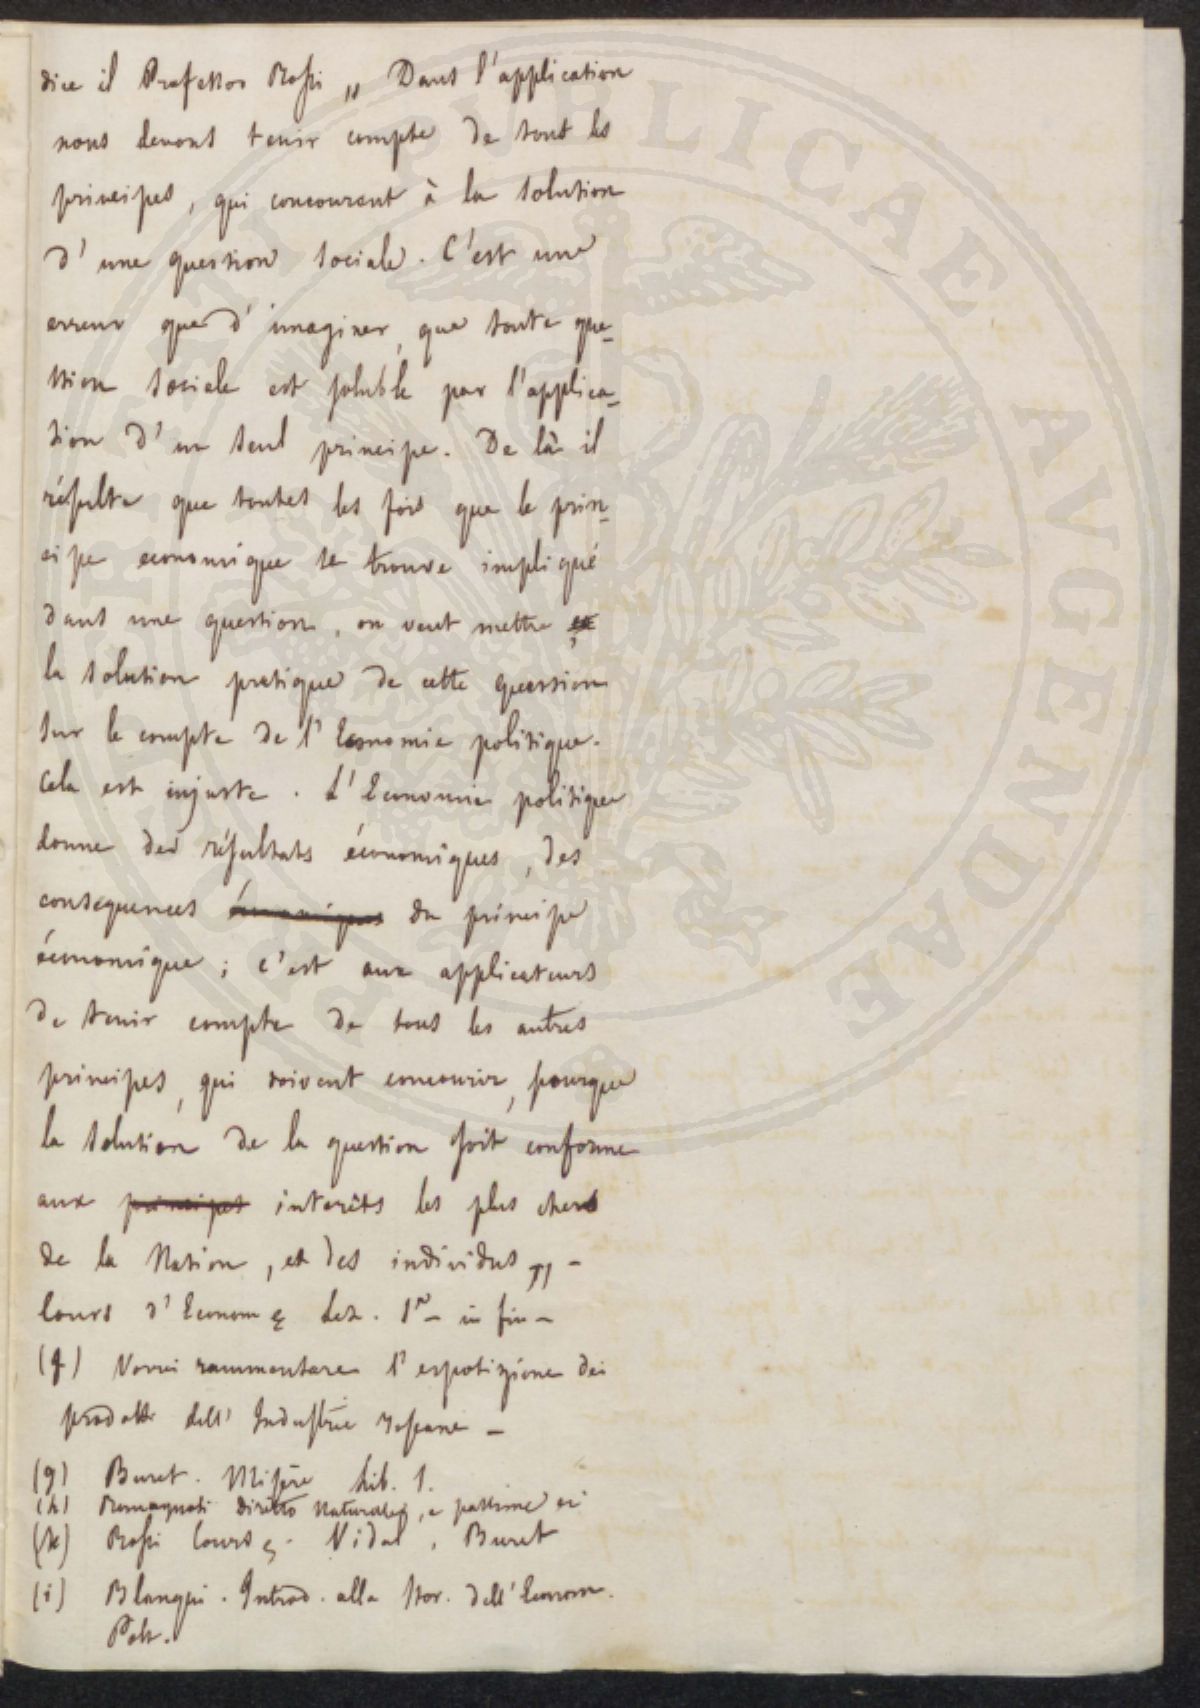 dice il Professor Rossi „ Dans l'application
nous devons tenir compte de tout les
principes, qui concourent à la solution
d'une question sociale. C'est une
erreur que d'imaginer, que toute que-
stion sociale est soluble par l'applica-
tion d'un seul principe. De là il
résulte que toutes les fois que le prin-
cipe economique se trouve impliqué
dans une question, on veut mettre
la solution pratique de cette question
sur le compte de l'Economie politique.
Cela est injuste. L'Economie politique
donne des résultats économiques, des
consequences économiques du principe
économique; c'est aux applicateurs
de tenir compte de tous les autres
principes, qui doivent concourir, pourque
la solution de la question soit conforme
aux principes interêts les plus chers
de la Nation, et des individus „ -
Cours d'Econom Lez. 1ª - in fin -
(f) Vorrei rammentare l'esposizione dei
prodotti dell'Industria
(g) Buret. Misère Lib. 1.
(h) Romagnosi Diritto Naturale, e
(k) Rossi Cours. Vidal, Buret
(i) Blanqui. Introd. alla Stor. dell'Econom.
Polit.
PUBLICAE AUGENDAE